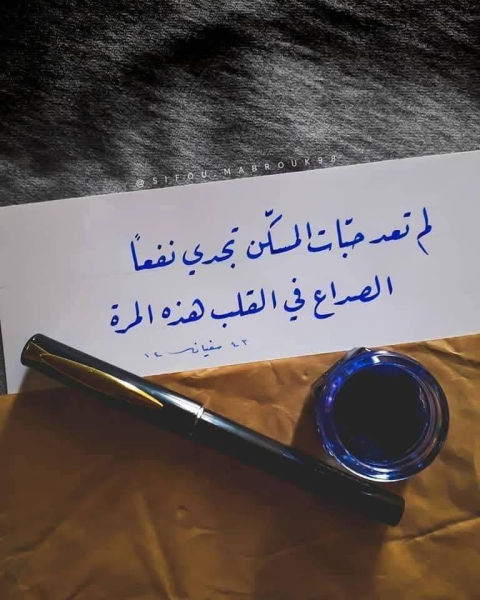 @SIFOU_MABROUK98
لم تعد حبّات المسكّن تجدي نفعاً
الصداع في القلب هذه المرة
سفيان